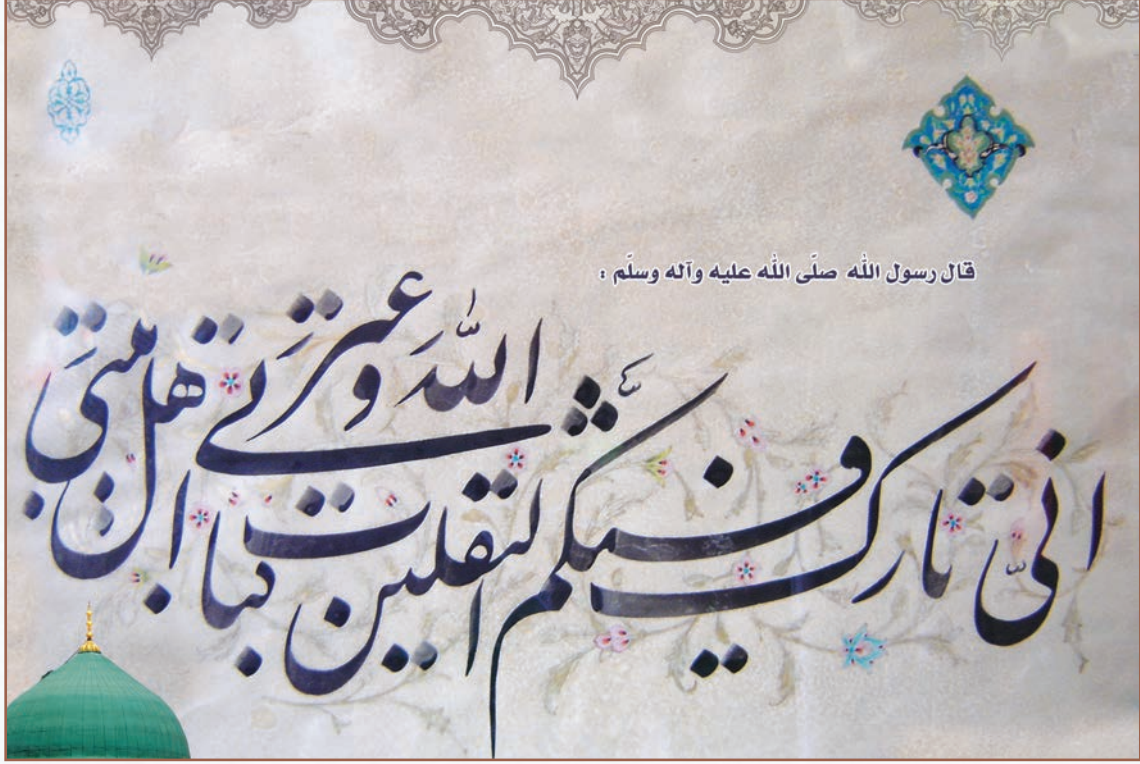 قال رسول الله صلّى الله عليه وآله وسلّم :
انّي تارك فيكم الثقلين كتاب الله وعترتي اهل بيتي